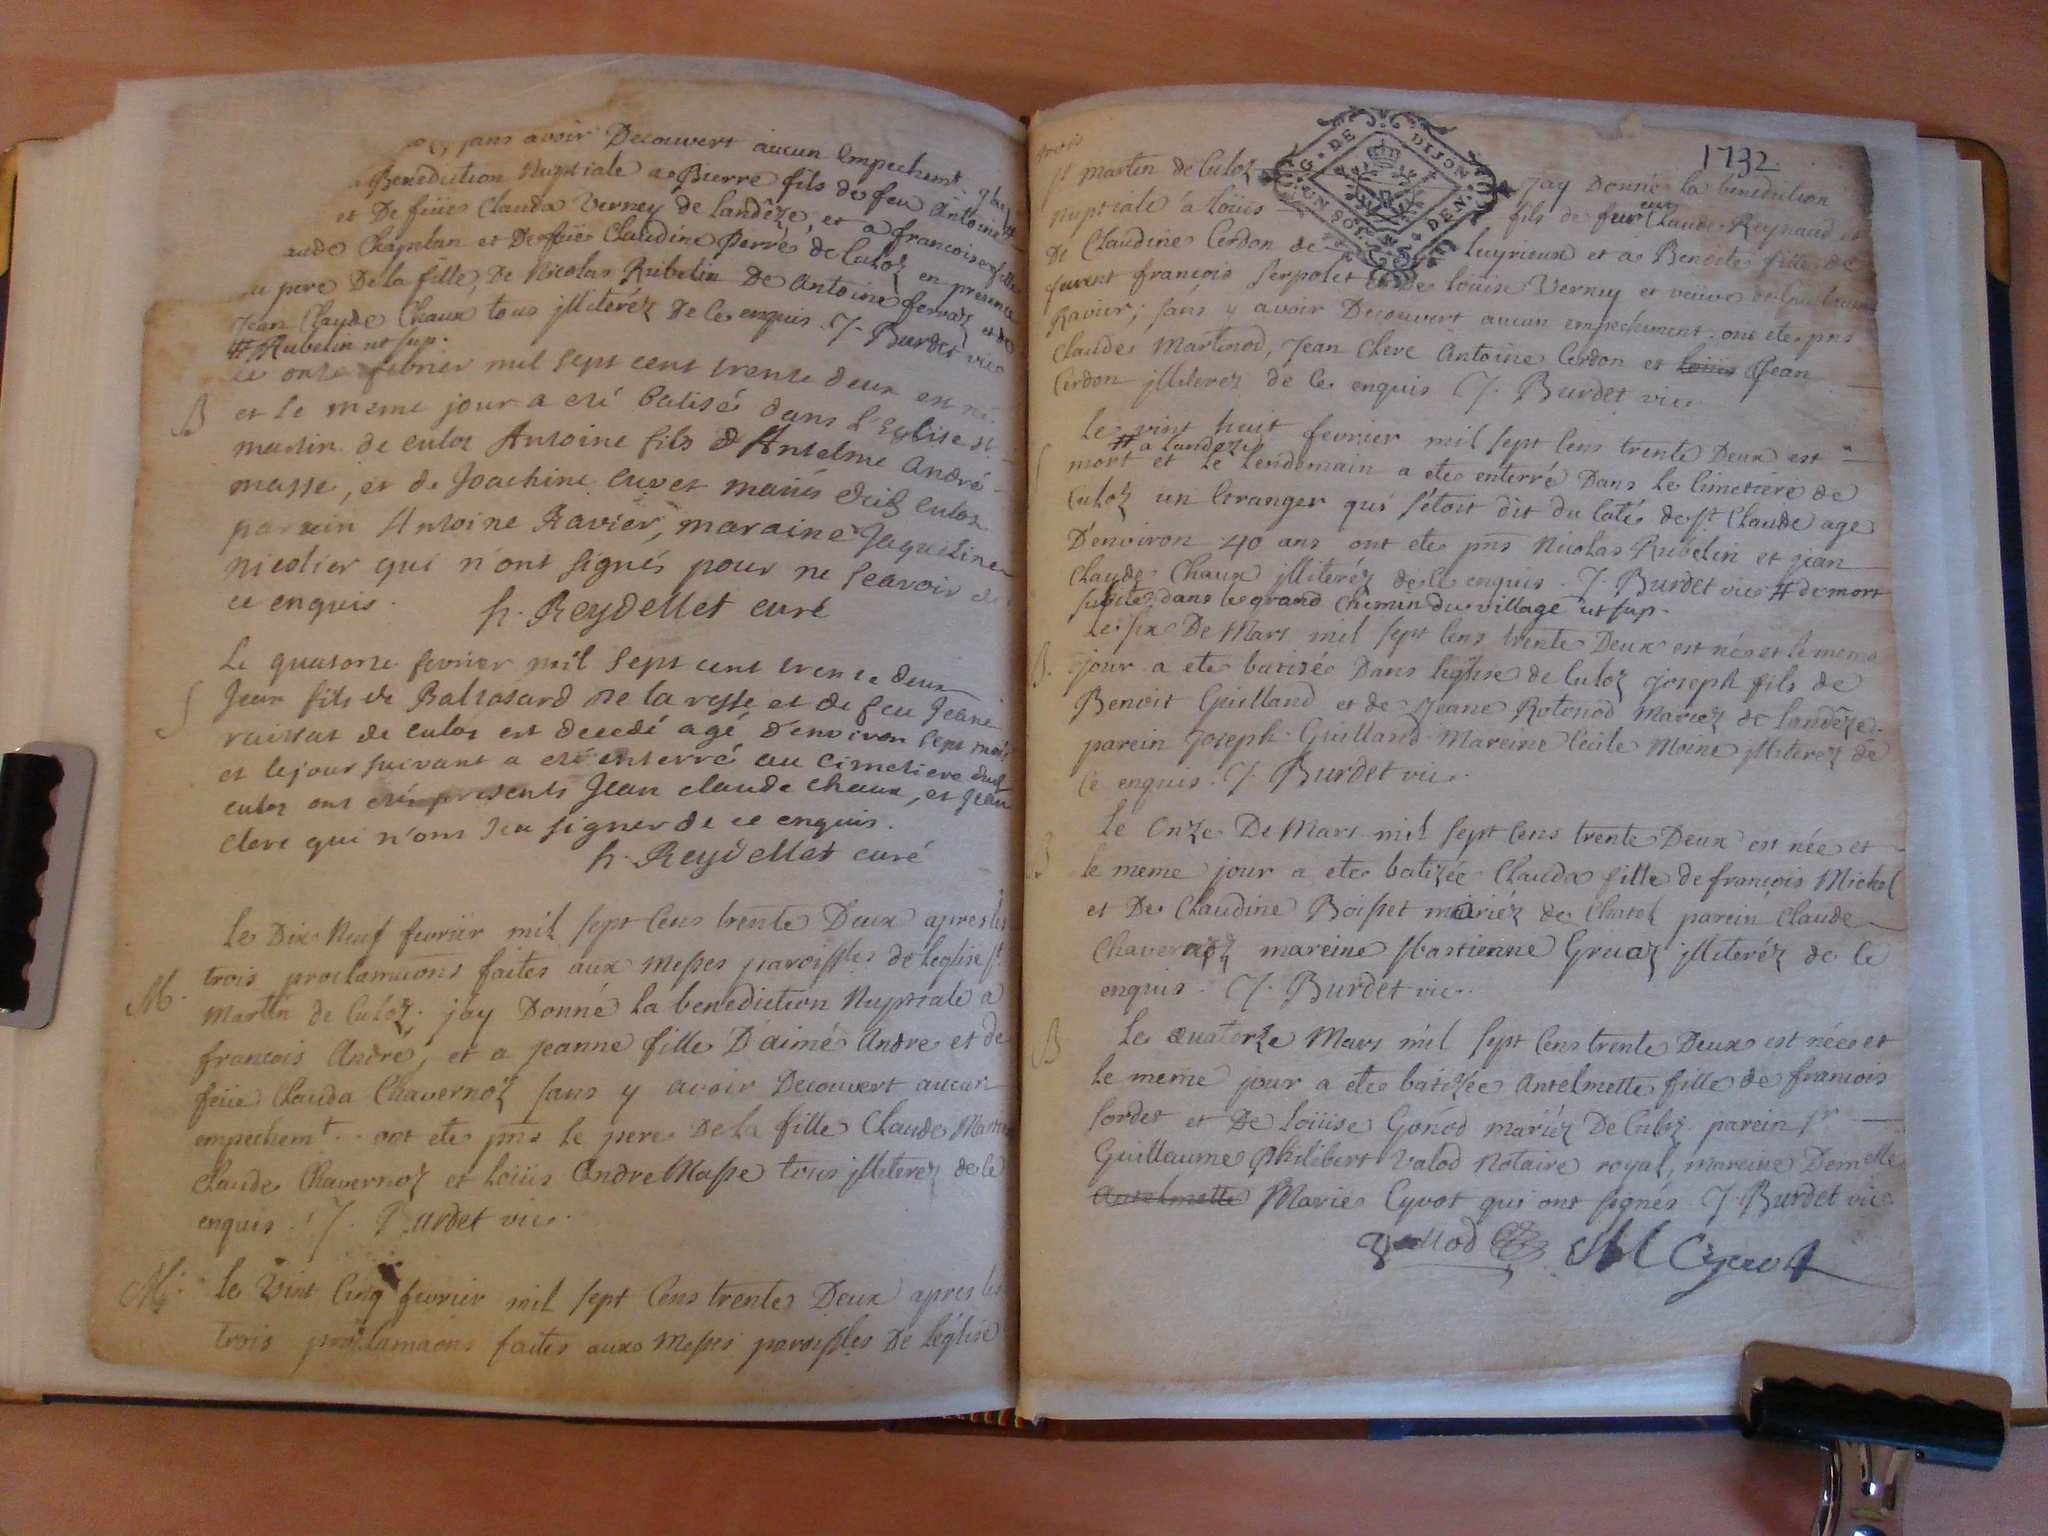 sans avoir Decouvert aucun Empechemt.
Benediction Nuptiale a Pierre fils de feu Antoine
et De feüe Clauda Verney de landéze, et a francoise fille
aude Chaptlan et De feüe Claudine Perré de Culoz en presence
pere De la fille, De Nicolas Rubelin De Antoine fervaz et de
Jean Claude Chaux tous jlliteréz de ce enquis. J. Burdet vic
# Rubelin ut sup.
Le onze febrier mil sept cent trente deux est né
B et le meme jour a eté batisé dans l'Eglise st
martin de culoz Antoine fils d'Antelme André
masse, et de Joachine cuvet mariés dud culoz
parrein Antoine Ravier, maraine Jaqueline
nicolier qui n'ont signés pour ne scavoir de
ce enquis. h. Reydellet curé
Le quatorze fevrier mil sept cent trente deux
S Jean fils de Baltasard De la resse et de feu Jeane
de culoz est decedé agé d'environ sept mois
et le jour suivant a eté enterré au cimetiere dud
culoz ont eté presents Jean claude chaux, et Jean
clere qui n'ont sçu signer de ce enquis.
h. Reydellet curé
Le Dix Neuf fevrier mil sept Cens trente Deux apres les
trois proclamaons faites aux Messes paroissles de leglise st
M. Martin de Culoz. jay Donné la benediction Nuptiale a
francois André, et a jeanne fille D'aimé Andre et de
feüe Clauda Chavernoz sans y avoir Decouvert aucun
empechemt. ont ete pns le pere De la fille Claude
Claude Chavernoz et Loüis Andre Masse tous jlliterez de ce
enquis. J. Burdet vic.
M. Le Vint Cinq fevrier mil sept Cens trente Deux apres les
trois proclamaons faites aux Messes paroissles De l'église
trois
1732.
G. DE DIJON
DEN
UN SOL
st martin de Culoz jay Donné la benediction
nuptiale a Loüis fils de feu Claude Reynaud et
De Claudine Cerdon de luyrieux et a Benoite fille de
feuent francois Serpolet et de loüise Verney et veüve de Guillaume
Ravier; sans y avoir Decouvert aucun empechement. ont ete pns
Claude Martinod, Jean Clere Antoine Cerdon et Loüis Jean
Cerdon jlliterez de ce enquis J. Burdet vic.
Le vint huit fevrier mil sept Cens trente Deux est
# a landeze
S mort et le lendemain a ete enterré Dans le Cimetiere de
Culoz un Etranger qui s'étoit dit du Coté de St Claude agé
D'environ 40 ans ont ete pns Nicolas Rubelin et jean
Claude Chaux jlliteréz de ce enquis. J. Burdet vic # de mort
subite dans le grand chemin du village ut sup.
Le six De Mars mil sept Cens trente Deux est né et le meme
B. jour a ete batisée Dans leglise de Culoz joseph fils de
Benoit Guilland et de jeane Rotonod Mariez de landéze.
parein joseph Guilland Mareine Cécile Moine jlliterez de
ce enquis. J. Burdet vic.
Le Onze De Mars mil sept Cens trente Deux est née et
B le meme jour a ete batizée Clauda fille de francois Michel
et De Claudine Boisset mariéz de Chatel parein Claude
Chavernoz mareine sbastienne Gruaz jlliteréz de ce
enquis. J. Burdet vic.
B Le quatorze Mars mil sept Cens trente Deux est née et
le meme jour a ete batizée Antelmette fille de francois
Sordet et De Loüise Gonod mariéz De Culoz. parein sr
Guillaume Philibert Valod Notaire royal, mareine Demelle
Antelmette Marie Cyvot qui ont signés. J. Burdet vic
Vallod M Cyvot